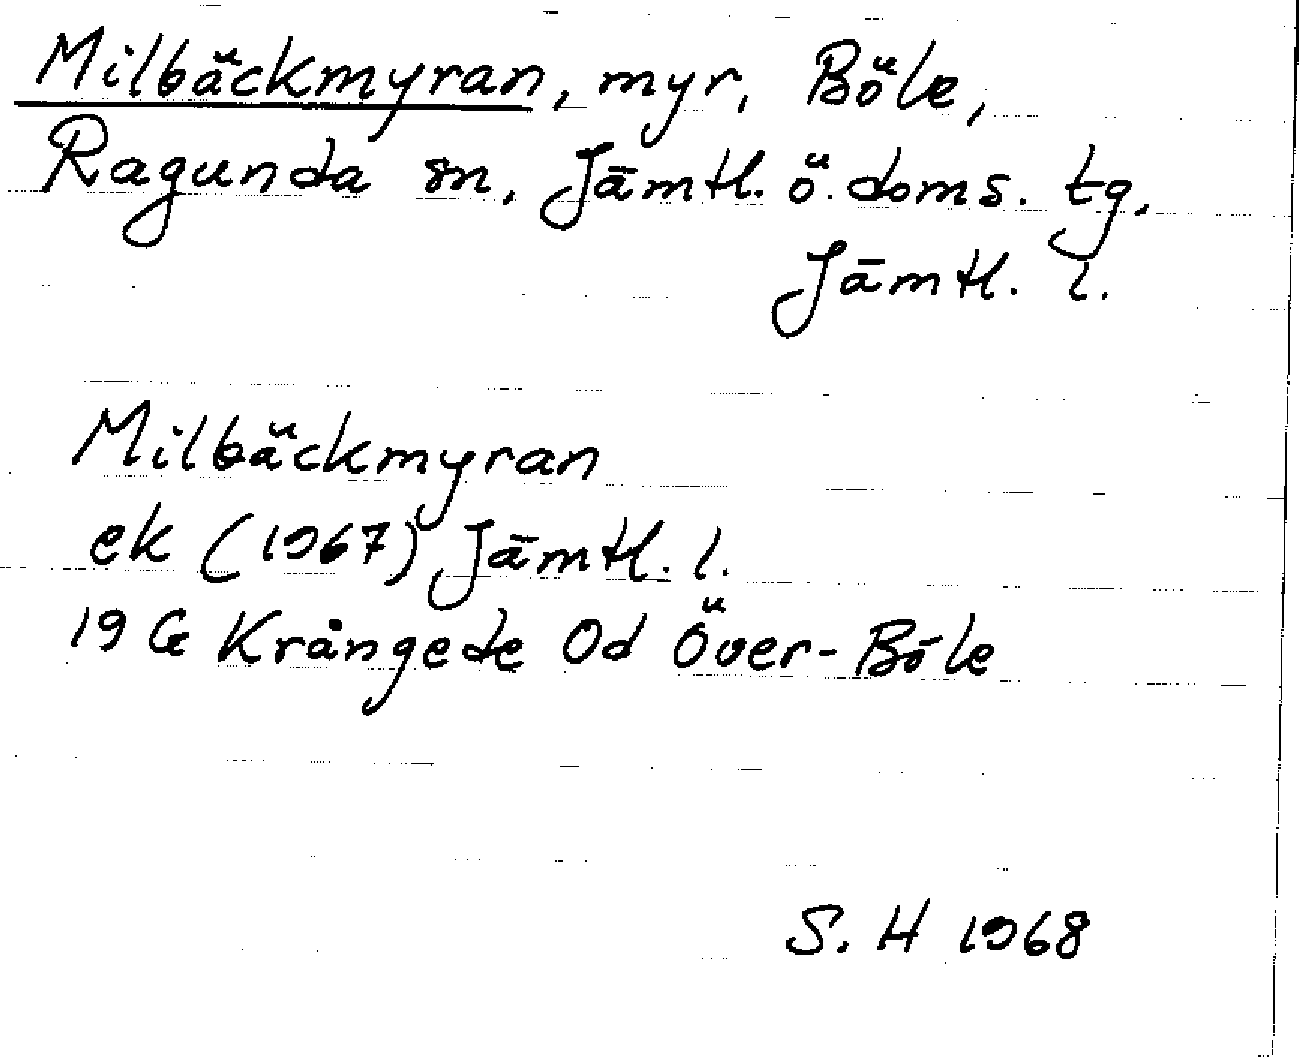 Milbäckmyran, myr, Böle,
Ragunda sn, Jämtl. ö. doms. tg.
Jämtl. l.
Milbäckmyran
ek (1967) Jämtl. l.
19 G Krångede Od Över-Böle
S. H 1968